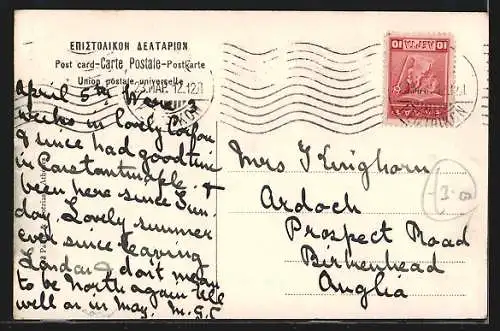 ΕΠΙΣΤΟΛΙΚΟΝ ΔΕΛΤΑΡΙΟΝ
Post card—Carte Postale—Postkarte
Union postale universelle
23 ΜΑΡ. 12
April 5th Were 3
weeks in lovely Corfou
& since had good time
in Constantinople. &
been here since Sun-
day. Lovely summer
ever since leaving
London & don't mean
to be North again till
well on in May. M.S.C
ΛΕΠΤΑ
10
10
ΕΛΛΑΣ
Mrs J Kinghorn
Ardoch
Prospect Road
Birkenhead
Anglia